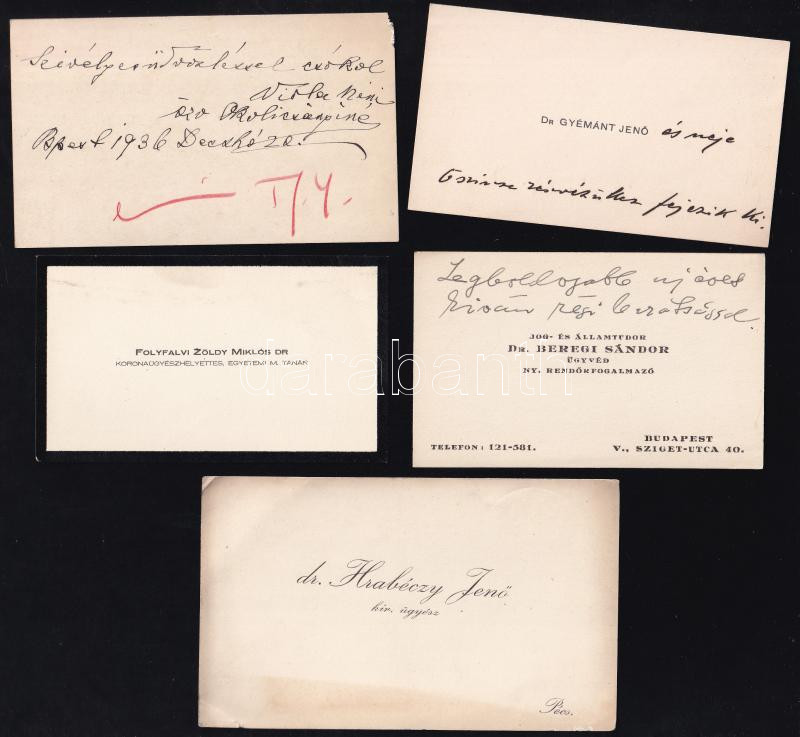 Szivélyes üdvözléssel csókol
Viola néni
özv Okolicsányiné
Bpest 1936 Deczhó 20.
Dr GYÉMÁNT JENŐ és neje
őszinte részvétüket fejezik ki.
FOLYFALVI ZÖLDY MIKLÓS DR
KORONAÜGYÉSZHELYETTES, EGYETEMI M. TANÁR
Legboldogabb uj éves
kiván régi barátsággal.
JOG- ÉS ÁLLAMTUDOR
DR. BEREGI SÁNDOR
ÜGYVÉD
NY. RENDŐRFOGALMAZÓ
TELEFON: 121-581.
BUDAPEST
V., SZIGET-UTCA 40.
darabanth
dr. Hrabéczy Jenő
kir. ügyész
Pécs.